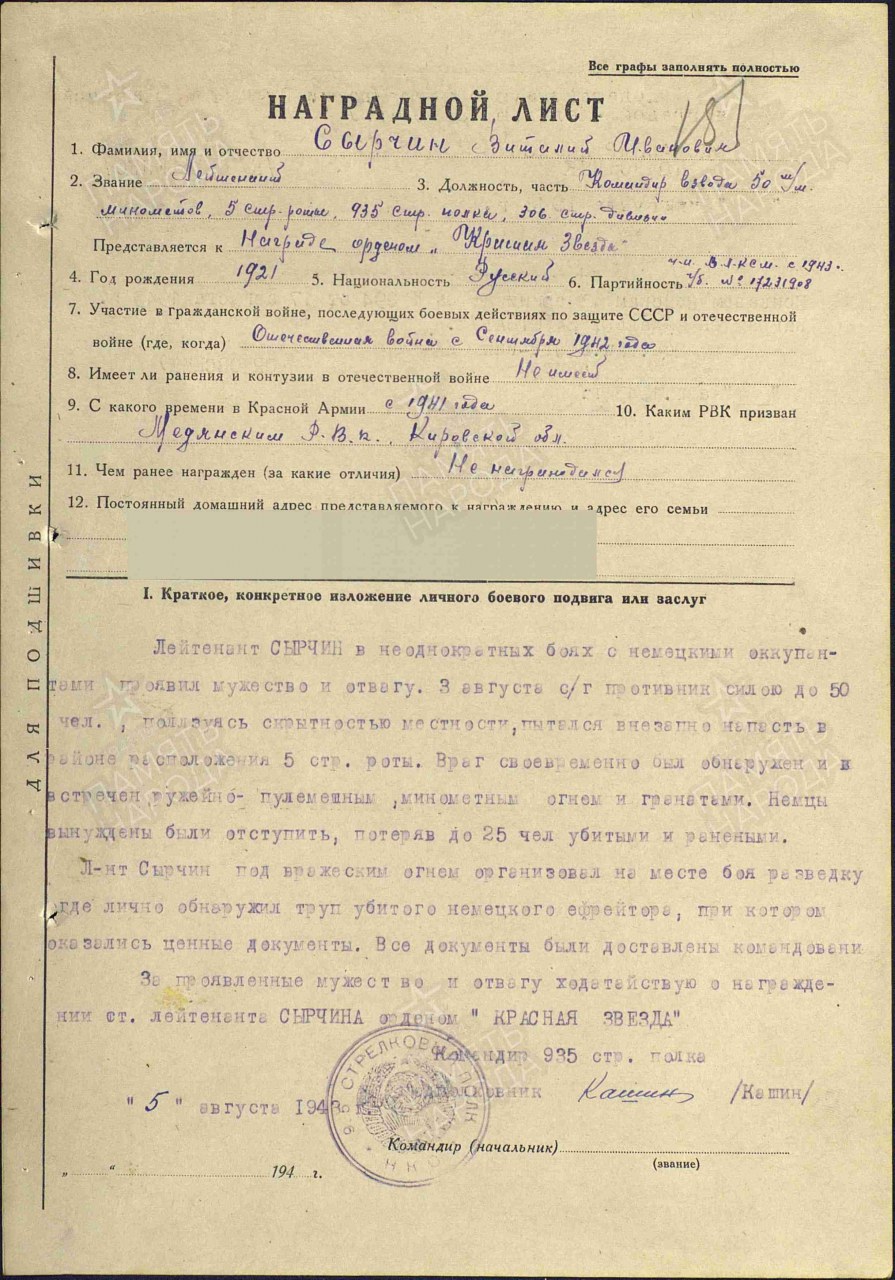 Все графы заполнять полностью
НАГРАДНОЙ ЛИСТ
1. Фамилия, имя и отчество Сырчин Виталий Иванович
2. Звание Лейтенант 3. Должность, часть Командир взвода 50 м/м.
минометов, 5 стр. роты, 935 стр. полка, 306 стр. дивизии
Представляется к Награде орденом „Красная Звезда"
ч.и. В.Л.К.С.М. с 1943г.
4. Год рождения 1921 5. Национальность Русский 6. Партийность ч/б. № 17231908
7. Участие в гражданской войне, последующих боевых действиях по защите СССР и отечественной
войне (где, когда) Отечественная война с Сентября 1942 года
8. Имеет ли ранения и контузии в отечественной войне Не имеет
9. С какого времени в Красной Армии с 1941 года 10. Каким РВК призван
Медянским Р.В.К., Кировской обл.
11. Чем ранее награжден (за какие отличия) Не награждался
12. Постоянный домашний адрес представляемого к награждению и адрес его семьи
I. Краткое, конкретное изложение личного боевого подвига или заслуг
Лейтенант СЫРЧИН в неоднократных боях с немецкими оккупан-
тами проявил мужество и отвагу. 3 августа с/г противник силою до 50
чел., пользуясь скрытностью местности, пытался внезапно напасть в
районе расположения 5 стр. роты. Враг своевременно был обнаружен и в
встречен ружейно- пулеметным ,минометным огнем и гранатами. Немцы
вынуждены были отступить, потеряв до 25 чел убитыми и ранеными.
Л-нт Сырчин под вражеским огнем организовал на месте боя разведку
где лично обнаружил труп убитого немецкого ефрейтора, при котором
оказались ценные документы. Все документы были доставлены командовани
За проявленные мужест во и отвагу ходатайствую о награжде-
нии ст. лейтенанта СЫРЧИНА орденом " КРАСНАЯ ЗВЕЗДА"
Командир 935 стр. полка
полковник Кашин /Кашин/
" 5 " августа 1943 г.
Командир (начальник)
(звание)
„ “ 194 г.
ДЛЯ ПОДШИВКИ
935 СТРЕЛКОВЫЙ ПОЛК
ПАМЯТЬ НАРОДА